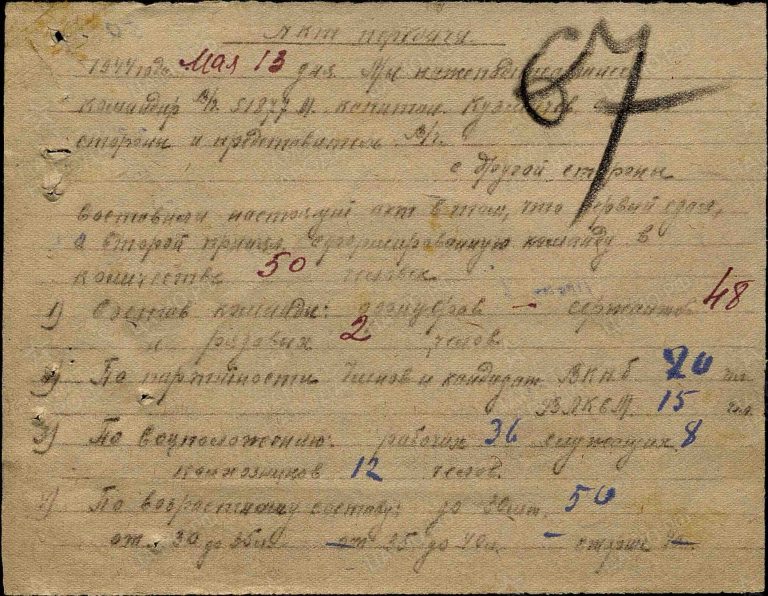 Акт передачи
67
1944 года Мая 13 дня Мы нижеподписавшиеся
командир в/ч 51877 М. капитан Кузнецов с
стороны и представитель в/ч.
с другой стороны
составили настоящий акт в том, что первый сдал,
а второй принял сформированную команду в
количестве 50 человек
1) Состав команды: офицеров — сержантов 48
и рядовых 2 челов.
2) По партийности членов и кандидат. ВКПб 20 чел.
ВЛКСМ 15 чел.
3) По соцположению: рабочих 36 служащих 8
колхозников 12 челов.
4) По возрастному составу: до 30 лет. 50
от 30 до 35 л. — от 35 до 40 л. — старше —